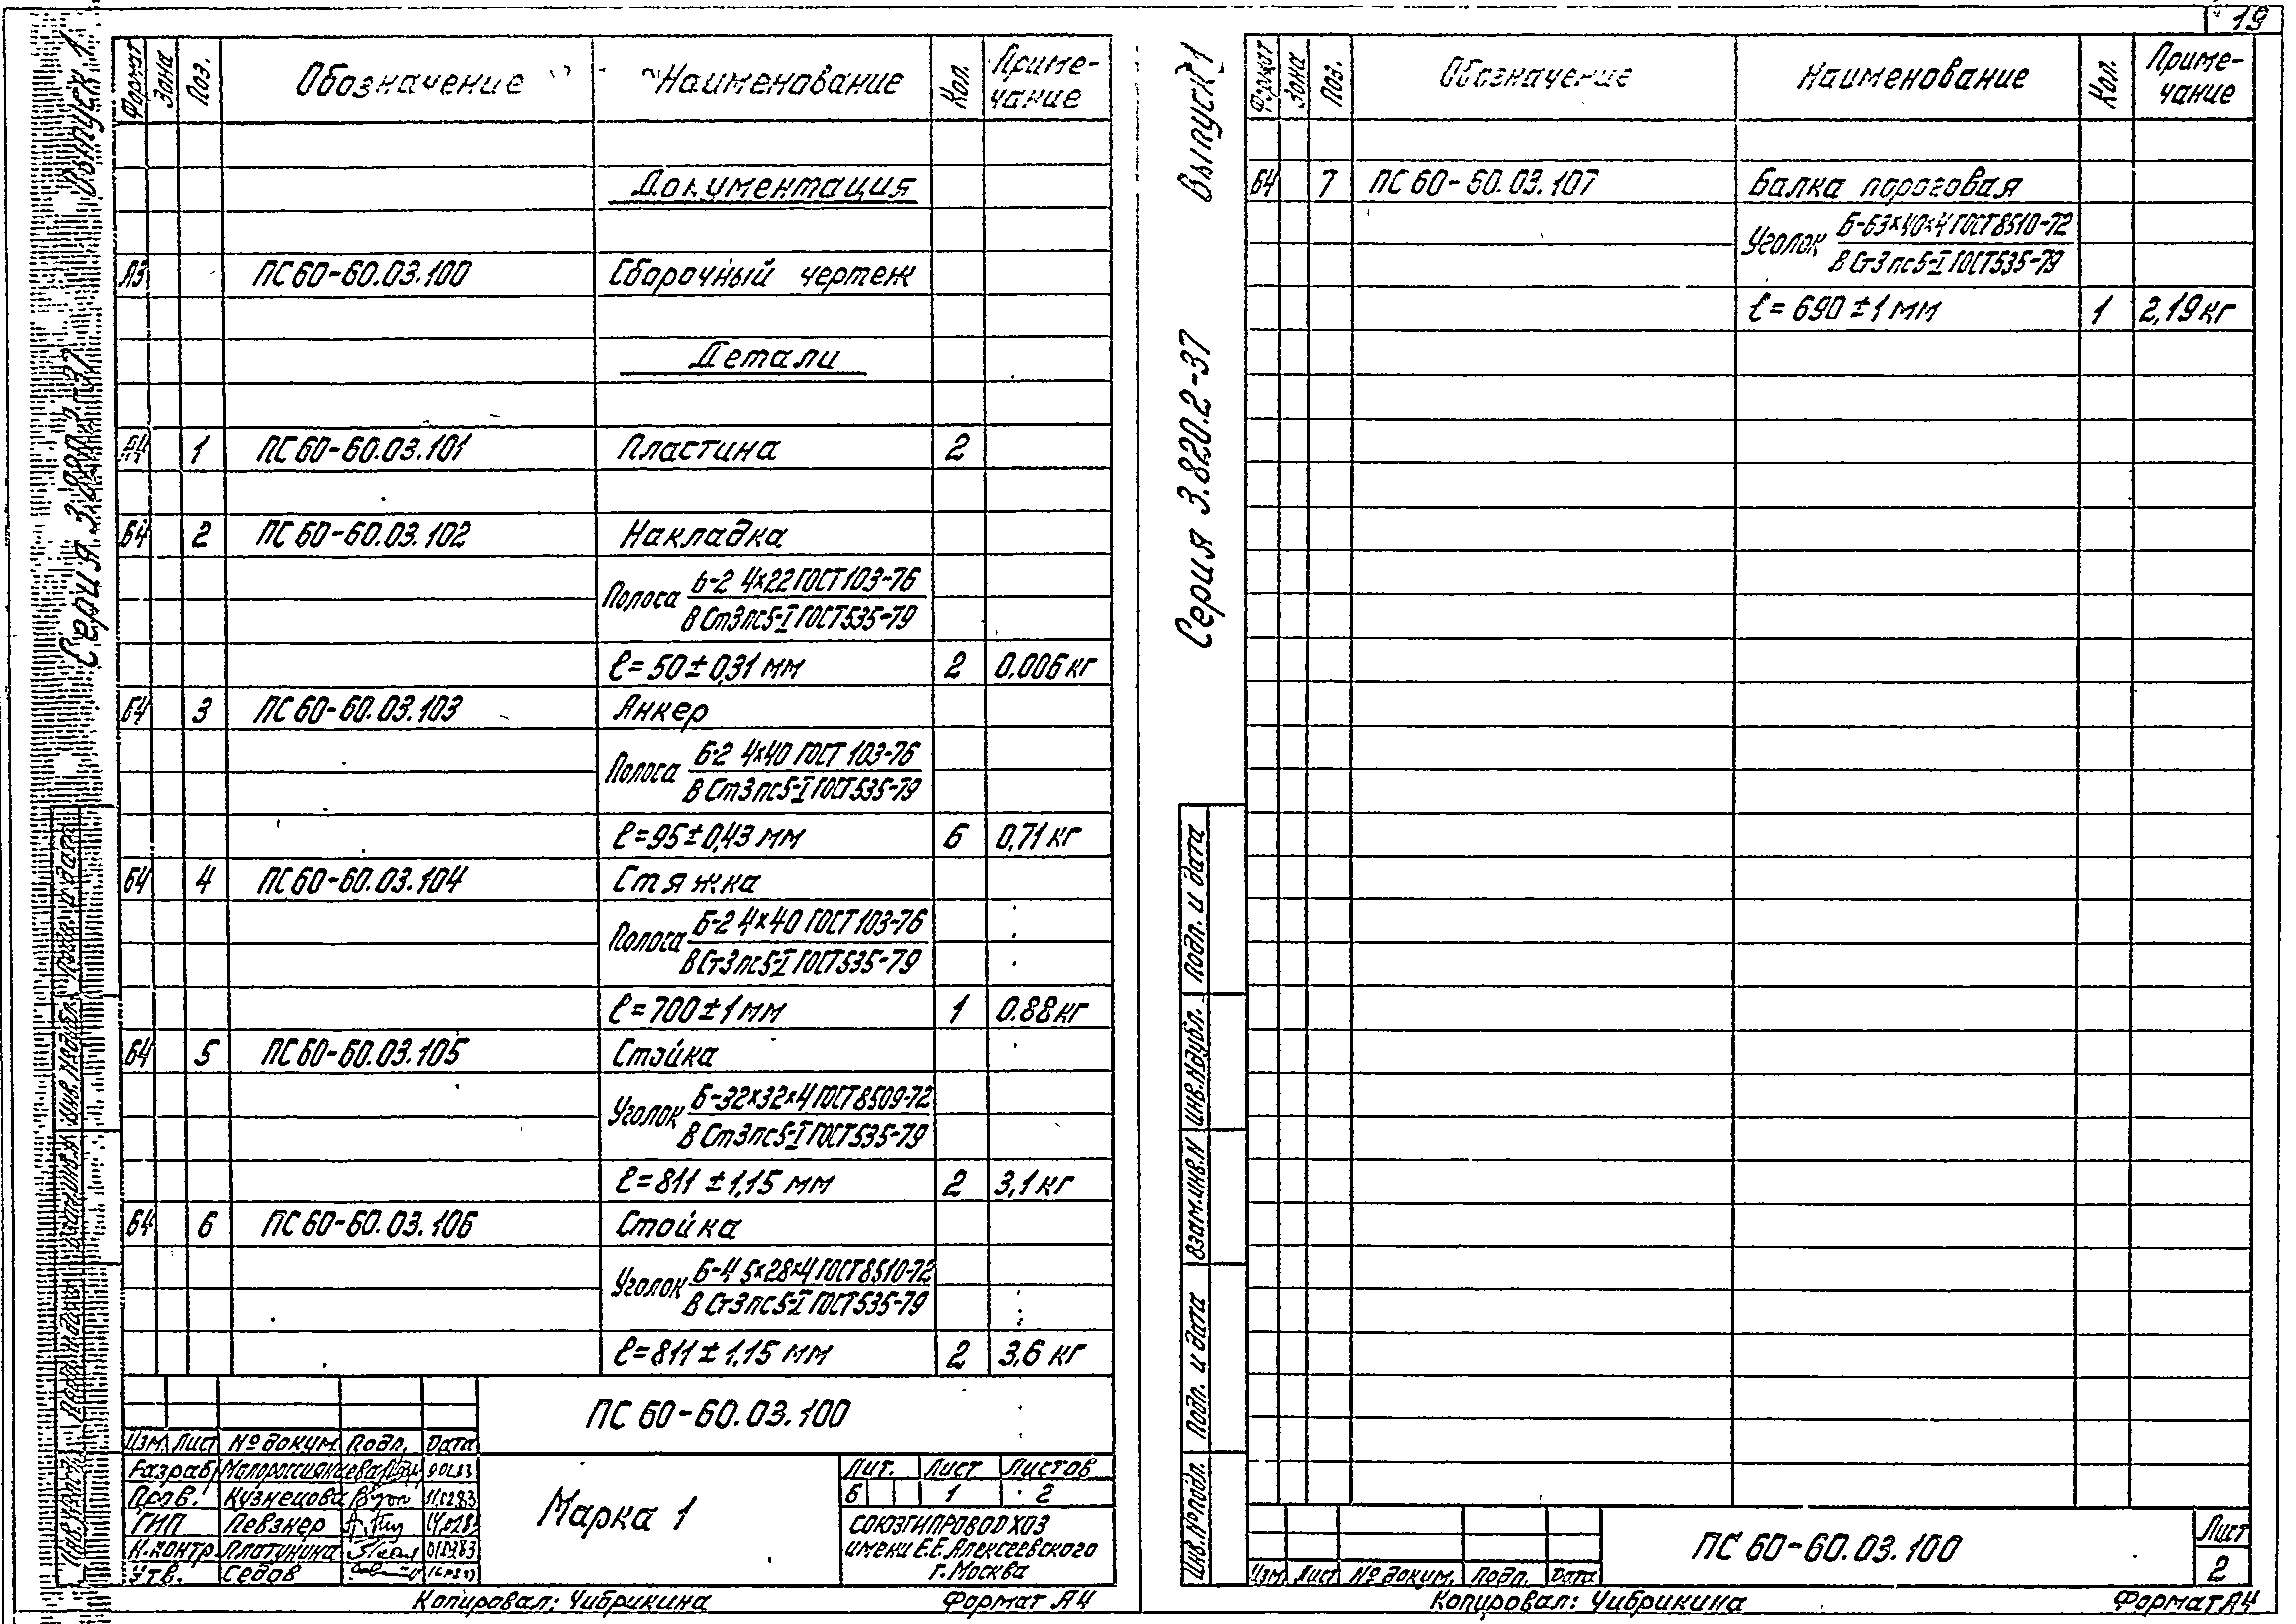 19
Серия 3.820.2-37 Выпуск 1
Формат Зона Поз. Обозначение Наименование Кол. Приме-
чание
Документация
А3 ПС60-60.03.100 Сборочный чертеж
Детали
А4 1 ПС60-60.03.101 Пластина 2
Б4 2 ПС60-60.03.102 Накладка
Полоса Б-2 4×22 ГОСТ103-76
ВСт3пс5-I ГОСТ535-79
ℓ=50±0,31 мм 2 0,006кг
Б4 3 ПС60-60.03.103 Анкер
Полоса Б-2 4×40 ГОСТ 103-76
ВСт3пс5-I ГОСТ535-79
ℓ=95±0,43 мм 6 0,71кг
Б4 4 ПС60-60.03.104 Стяжка
Полоса Б-2 4×40 ГОСТ103-76
ВСт3пс5-I ГОСТ535-79
ℓ=700±1мм 1 0.88кг
Б4 5 ПС60-60.03.105 Стойка
Уголок Б-32×32×4 ГОСТ8509-72
ВСт3пс5-I ГОСТ535-79
ℓ=811 ±1,15 мм 2 3,1кг
Б4 6 ПС60-60.03.106 Стойка
Уголок Б-45×28×4 ГОСТ8510-72
ВСт3пс5-I ГОСТ535-79
ℓ=811±1,15 мм 2 3,6 кг
ПС60-60.03.100
Изм. Лист № докум. Подп. Дата
Разраб.
Пров. Кузнецова 11.02.83
ГИП Певзнер
Н.контр. Платунина
Утв. Седов
Марка 1
Лит. Лист Листов
Б 1 2
СОЮЗГИПРОВОДХОЗ
имени Е.Е.Алексеевского
г.Москва
Копировал: Чибрикина Формат А4
Серия 3.820.2-37 Выпуск 1
Формат Зона Поз. Обозначение Наименование Кол. Приме-
чание
Б4 7 ПС60-60.03.107 Балка пороговая
Уголок Б-63×40×4 ГОСТ8510-72
ВСт3пс5-I ГОСТ535-79
ℓ=690±1мм 1 2,19кг
Подп. и дата
Инв.№дубл.
Взам.инв.№
Подп. и дата
Инв.№подл.
ПС60-60.03.100
Лист
2
Изм. Лист № докум. Подп. Дата
Копировал: Чибрикина Формат А4